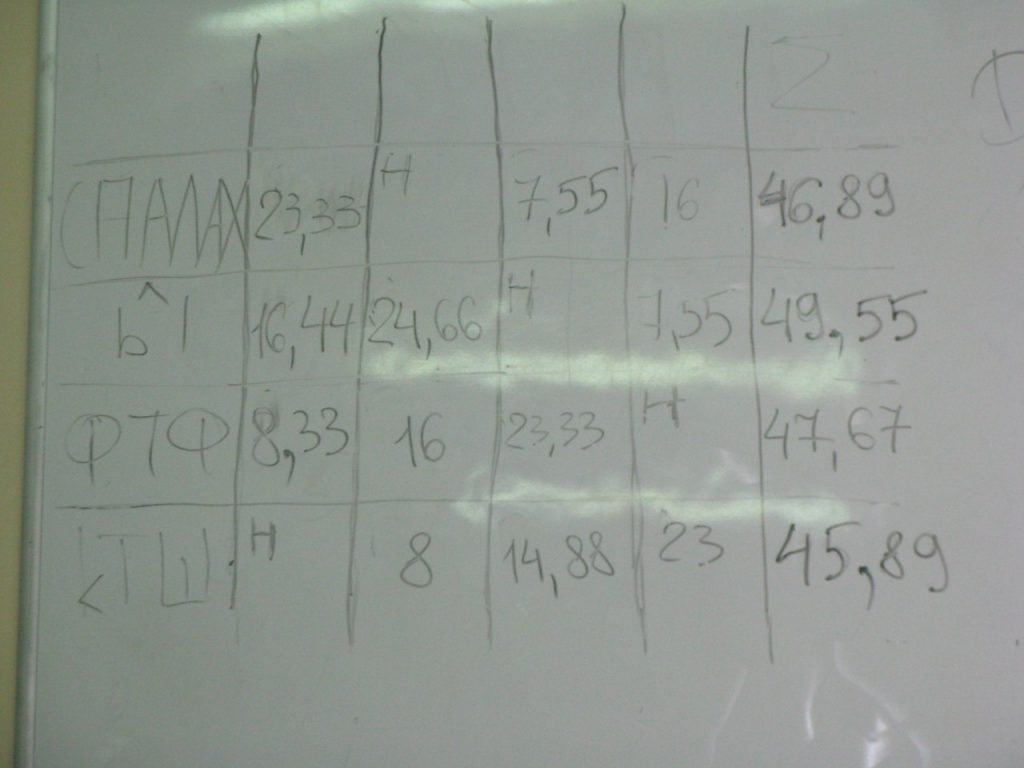 Σ
СПАЛАХ 23,33 Н 7,55 16 46,89
Ы 16,44 24,66 Н 7,55 49,55
ФТФ 8,33 16 23,33 Н 47,67
Н 8 14,88 23 45,89